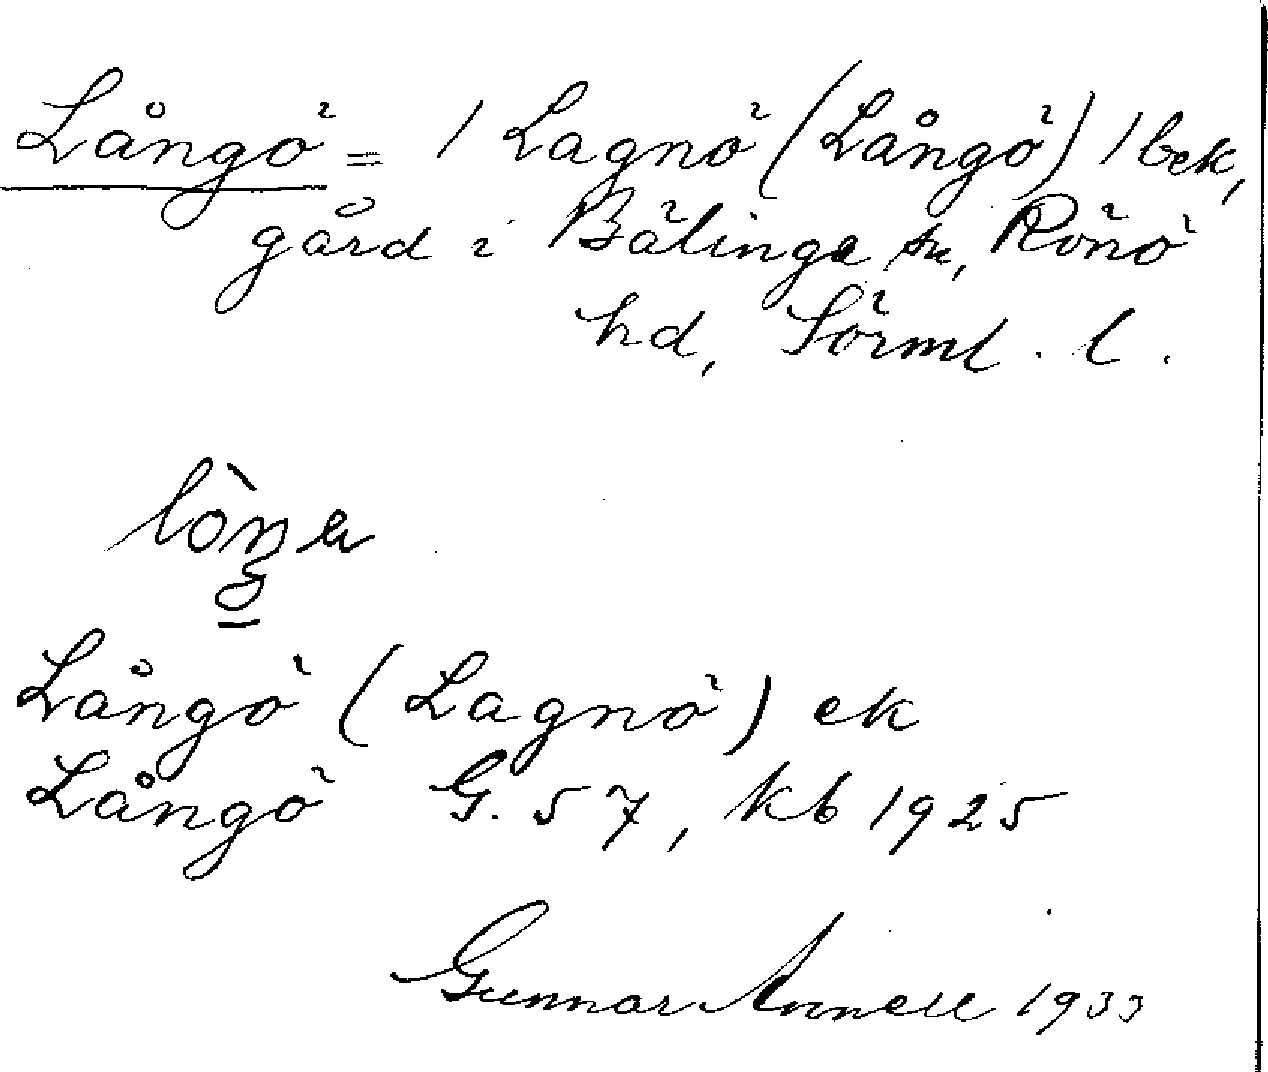 Långö = / Lagnö (Långö) / bek,
gård i Bälinge sn, Rönö
hd, Sörml. l.
Långö (Lagnö) ek
Långö G. 57, kb 1925
Gunnar Annell 1933